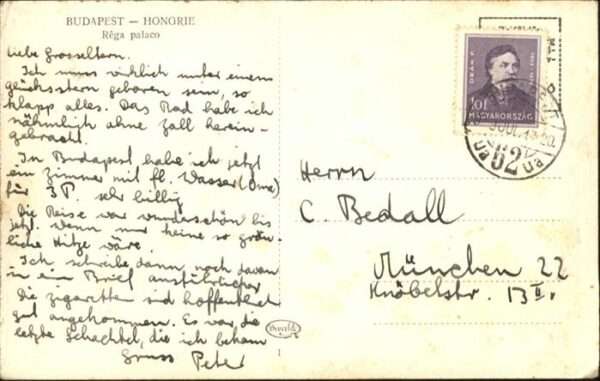 BUDAPEST — HONGRIE
Rêga palaco
Liebe Grosseltern.
Ich muss wirklich unter einem
glücksstern geboren sein, so
klapp alles. Das Rad habe ich
nähmlich ohne Zoll herein-
gebracht.
In Budapest habe ich jetzt
ein Zimmer mit fl. Wasser (Oma)
für 3 P. sehr billig
Die Reise war wunderschön bis
jetzt. Wenn nur keine so gräu-
liche Hitze wäre.
Ich schreibe dann noch davon
in ein Brief ausführlicher
Die Zigaretten sind hoffentlich
gut angekommen. Es war die
letzte Schachtel, die ich bekam
Gruss Peter
DEÁK F.
10f
MAGYARORSZÁG
62
Herrn
C. Bedall
München 22
Knöbelstr. 13 II.